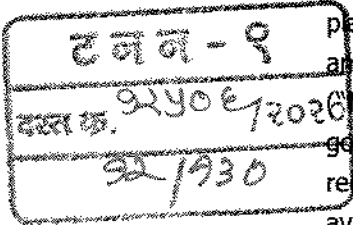 ट न न - ९
दस्त क्र. १२५०६/२०२६
१२/१३०
ple
an
go
re
av